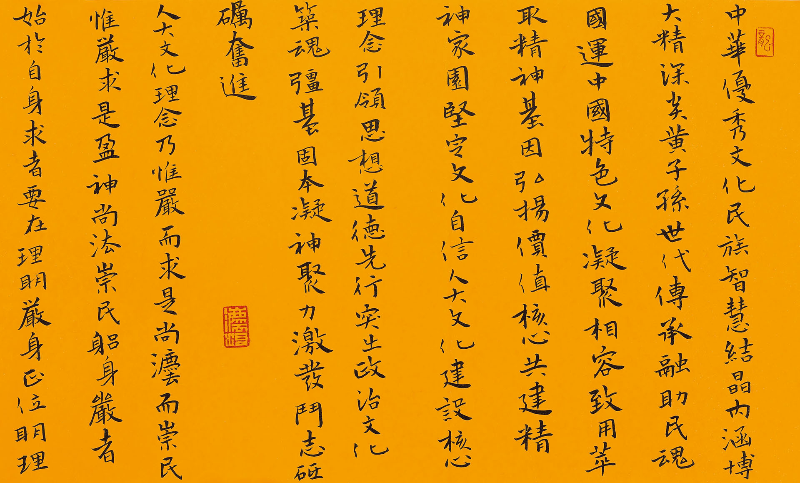 中華優秀文化民族智慧結晶內涵博
大精深炎黃子孫世代傳承融助民魂
國運中國特色文化凝聚相容致用萃
取精神基因弘揚價值核心共建精
神家園堅定文化自信人大文化建設核心
理念引領思想道德先行突出政治文化
築魂彊基固本凝神聚力激發鬥志砥
礪奮進
人大文化理念乃惟嚴而求是尚灋而崇民
惟嚴求是盈神尚法崇民躬身嚴者
始於自身求者要在理明嚴身正位明理